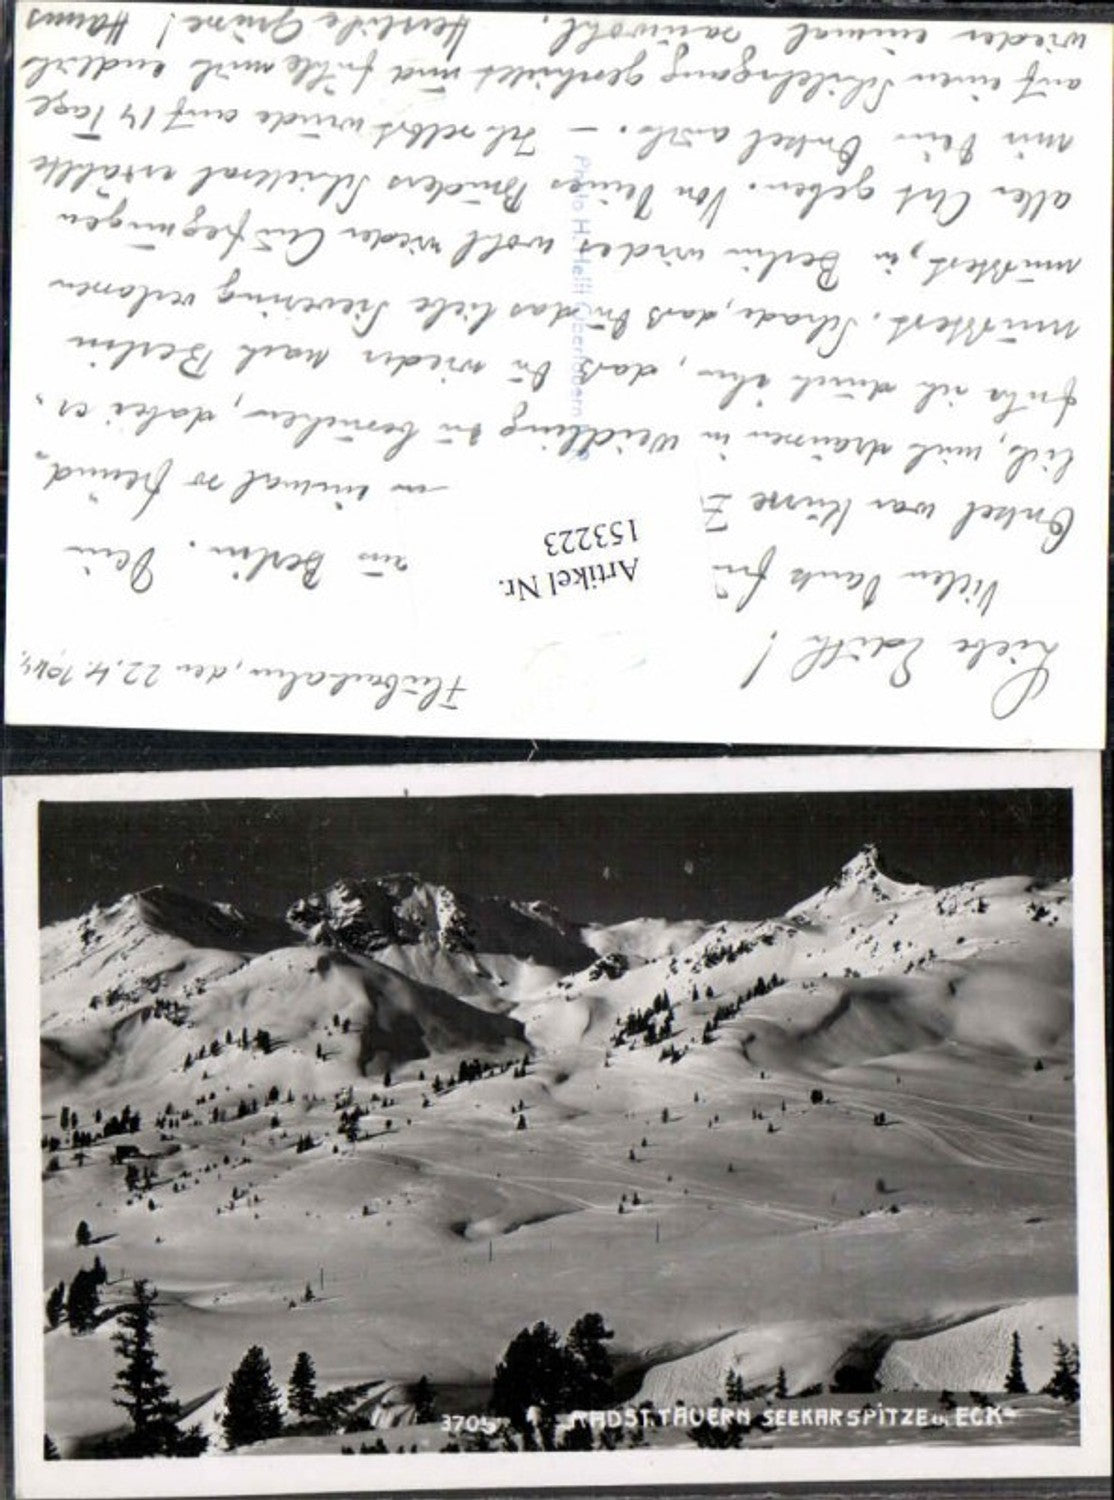 Liebe Edith!
Hubenalm, den 22.4.1944.
Vielen Dank für
aus Berlin. Dein
Onkel war kürze
so einmal so freund-
lich, mich draussen in Weidling zu besuchen, dabei er-
fuhr ich durch ihn, daß Du wieder nach Berlin
mußtest. Schade, daß Du das liebe Sievering verlassen
mußtest, in Berlin wird es wohl wieder Aufregungen
aller Art geben. Von Deines Bruders Schicksal erzählte
mir Dein Onkel auch. – Ich selbst wurde auf 14 Tage
auf einen Schilehrgang geschickt und fühle mich endlich
wieder einmal sauwohl. Herzliche Grüsse! Hanns
Artikel Nr.
153223
Photo H. Helff
3705 RADST. TAUERN SEEKARSPITZE u. ECK